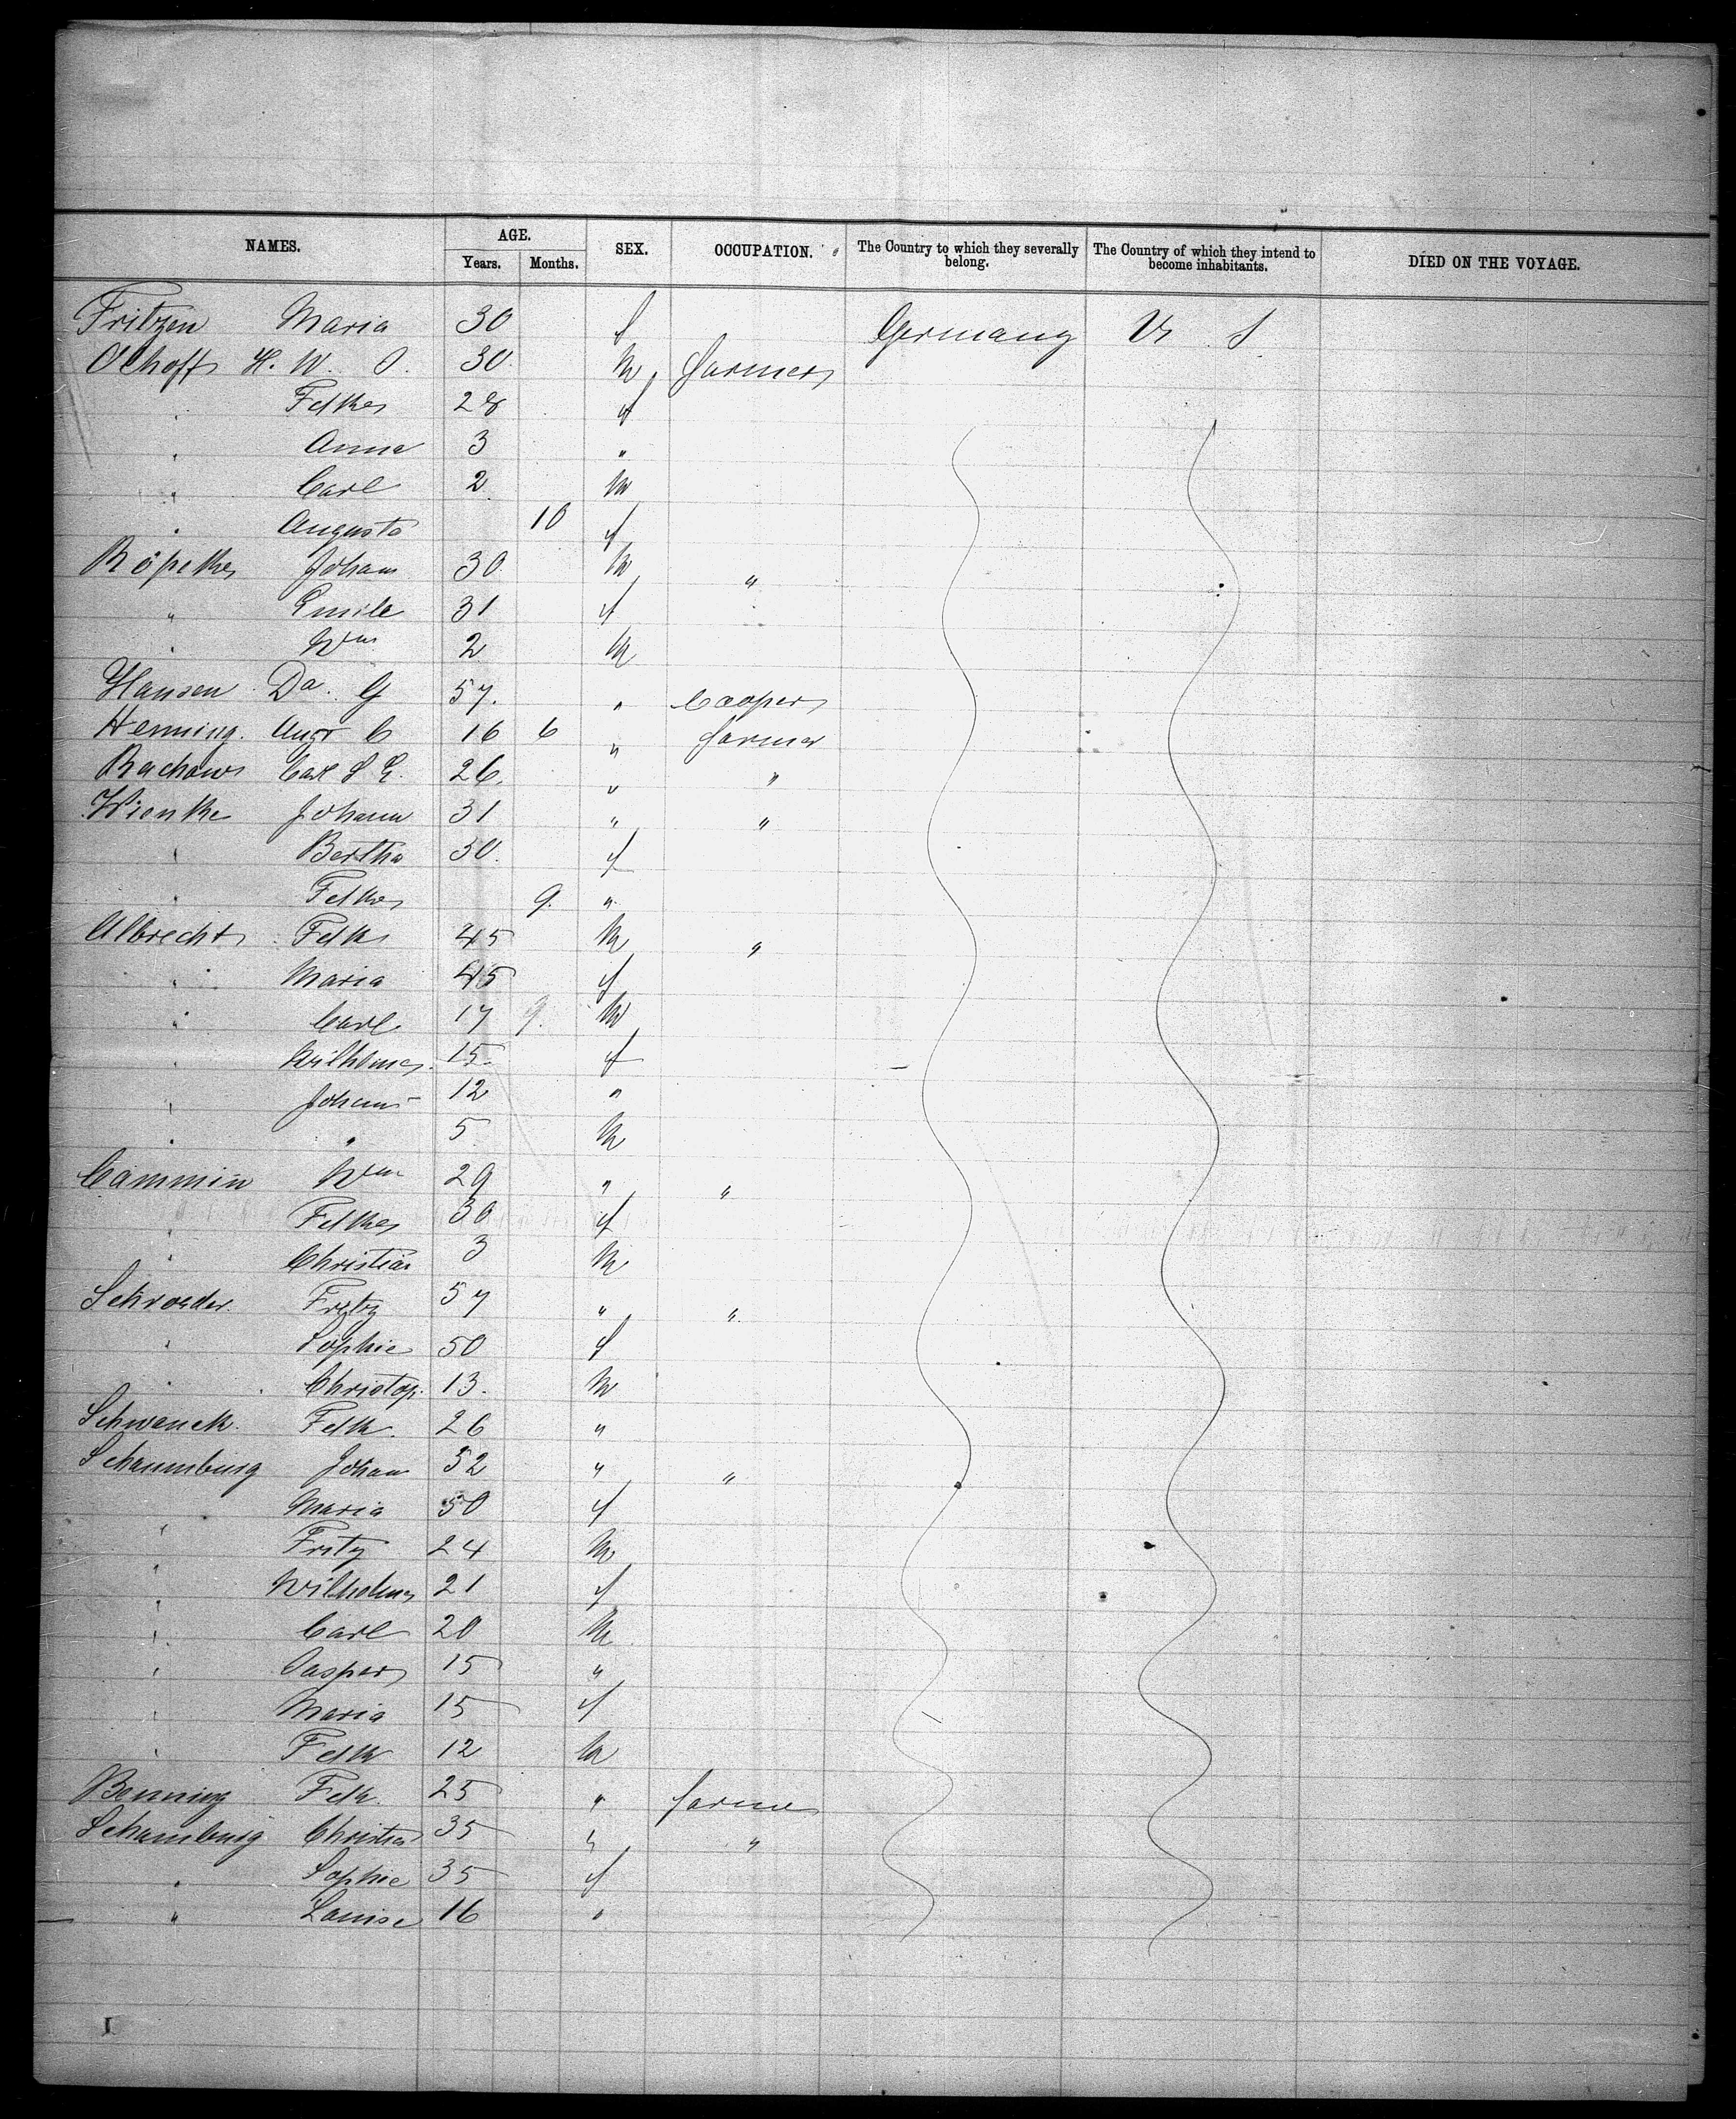 NAMES. AGE. SEX. OCCUPATION. The Country to which they severally belong. The Country of which they intend to become inhabitants. DIED ON THE VOYAGE.
Years. Months.
Fritzen Maria 30 f Germany U S
Olhoff H. W. 30 m farmer
" 28 f
" Anna 3 "
" Carl 2 m
" Augusta 10 f
Röpcke Johann 30 m "
" Emile 31 f
" Wm 2 m
Hansen Da. G 57. " Cooper
Henning. Augt C 16 6 " farmer
Rachow Carl 26. " "
Wienke Johann 31 " "
" Bertha 30. f
" 9. "
Albrecht Fdk 45 m "
" Maria 45 f
" Carl 17 9. m
" Wilhelma 15 f
" Johann 12 "
" " 5 m
Cammin Wm 29 " "
" 30 f
" Christian 3 m
Schroeder Fritz 57 " "
" Sophie 50 f
" Christop. 13. m
Schwenck. Fdk. 26 "
Schaumburg Johan 52 " "
" Maria 50 f
" Fritz 24 m
" Wilhelma 21 f
" Carl 20 m
" Casper 15 "
" Maria 15 f
" Fdk 12 m
Benning Fdk. 25 " farmer
Schaumburg Christian 35 " "
" Sophie 35 f
" Louise 16 "